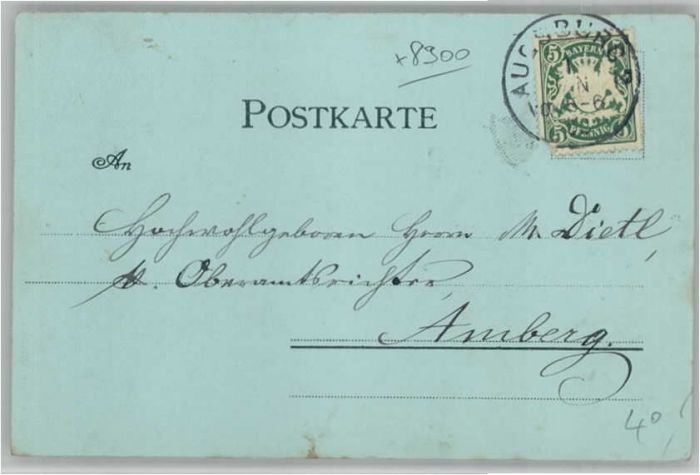 x8900
AUGSBURG 2
5 BAYERN 5
N
Vo. 5-6
5 PFENNIG 5
POSTKARTE
An
Hochwohlgeboren Herrn M. Dietl,
Oberamtsrichter
Amberg.
40